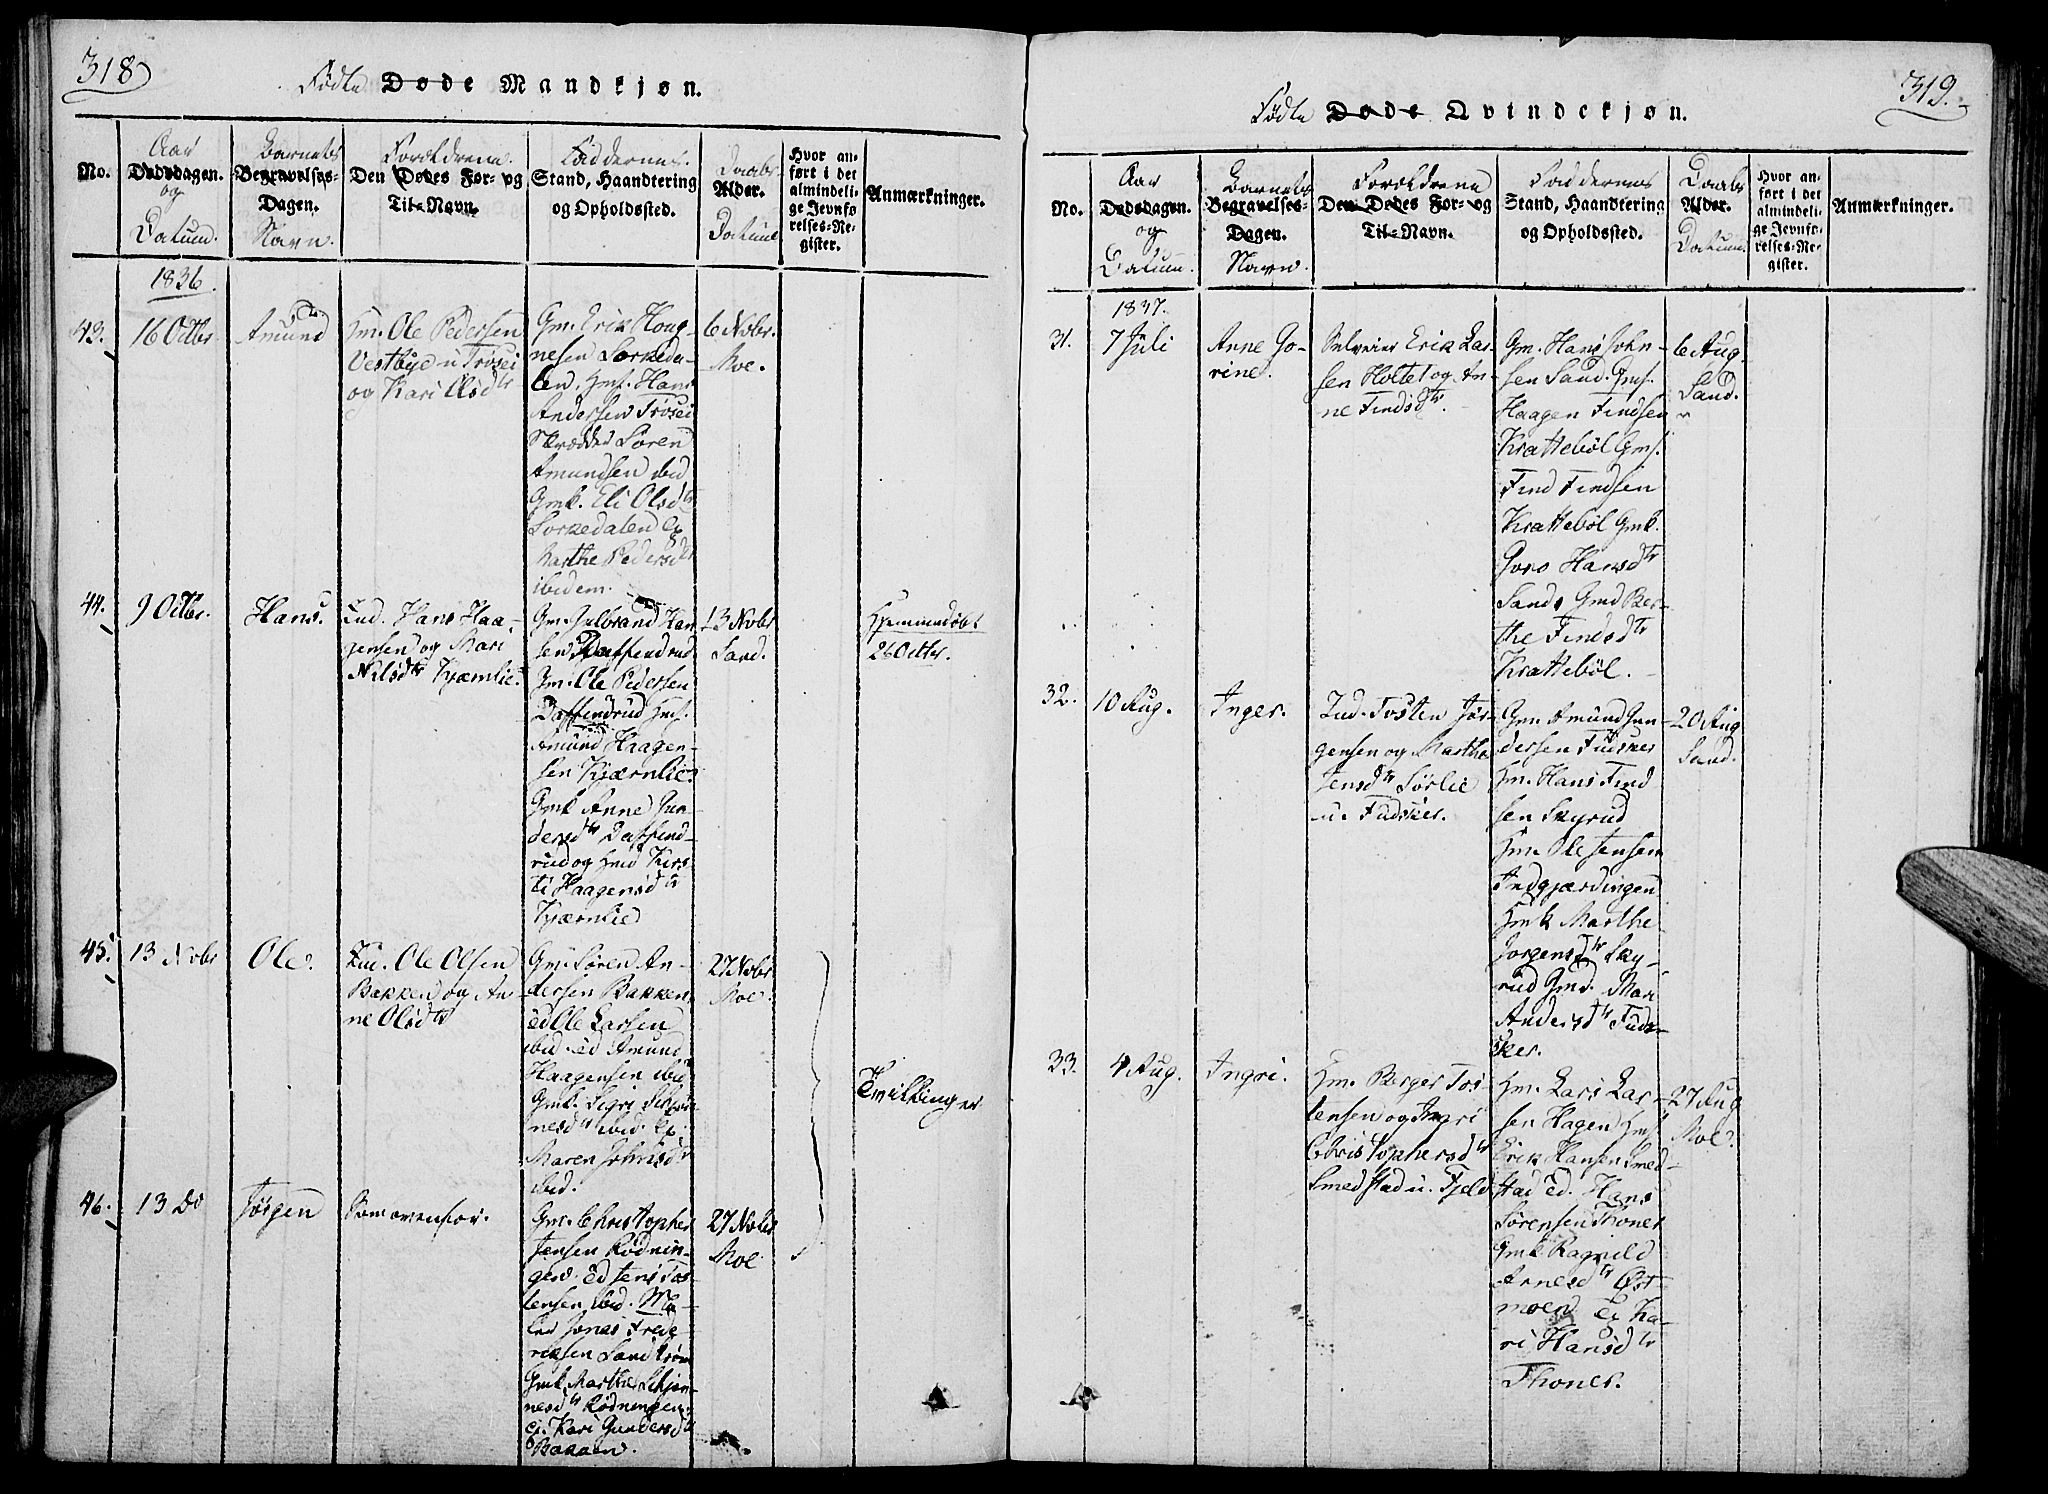 318
Fødte Døde Mandkjøn.
No.
Aar
Dødsdagen.
og
Datum.
Barnets
Begravelses-
Dagen.
Navn.
Forældrene
Den Dødes For- og
Til-Navn.
Faddernes
Stand, Haandtering
og Opholdssted.
Daabs
Alder.
Datum
Hvor an-
ført i det
almindeli-
ge Jevnfø
relses-Re-
gister.
Anmærkninger.
1836.
43.
16 Octbr.
Amund
Hm. Ole Pedersen
Vestbye u. Trøsei
og Kari Olsdtr
Gm. Erik Houg-
nesen Lorkeda-
len, Hms. Hans
Andersen Trøsei
Skrædder Søren
Amundsen ibid
Gmk. Eli Olsdtr
Lorkedalen &
Marthe Pedersdtr
ibidem.
6 Nobr.
Moe.
44.
9 Octbr.
Hans.
Ind. Hans Haa-
gensen og Mari
Nilsdtr Kjærnlie.
Gm. Gulbrand Han
sen Daffindrud
Gm. Ole Pedersen
Daffindrud Hms.
Amund Haagen-
sen Kjærnlie.
Gmk Anne Gun-
dersdtr Daffind-
rud og Hmd Kirs-
ti Haagensdtr
Kjærnlie
13 Nobr
Sand.
Hjemmedøbt
26 Octbr.
45.
13 Nobr
Ole.
Ole Olsen
Bakken og An-
ne Olsdtr
Gm. Søren An-
dersen Bakken,
ed Ole Larsen
ibid. ed Amund
Haagensen ibid
Gmk. Sigri
nesdtr ibid. &
Maren Johnsdtr
ibid.
27 Nobr
Moe.
Tvillinger
46.
13 Do
Jørgen
Som ovenfor.
Gm. Christopher
Jensen Rødnin-
gen. ed Jens Tos-
tensen ibid.
Jonas Frede-
riksen Sandstrøm
Gmk. Marthe
nesdtr Rødningen
ej. Kari Gundersdtr
Bakken.
27 Nobr
Moe
319.
Fødte Døde Qvindekjøn.
No.
Aar
Dødsdagen.
og
Datum.
Barnets
Begravelses-
Dagen.
Navn.
Forældrene
Den Dødes For- og
Til-Navn.
Faddernes
Stand, Haandtering
og Opholdssted.
Daabs
Alder.
Datum.
Hvor an-
ført i det
almindeli-
ge Jevnfø-
relses-Re-
gister.
Anmærkninger.
1837.
31.
7 Juli
Anne Go-
rine.
Selveier Erik Lar-
sen Holtet og An-
ne Findsdtr.
Gm. Hans John-
sen Sand. Gms.
Haagen Findsen
Krattebøl Gms.
Find Findsen
Krattebøl Gmk.
Goro Hansdtr
Sands Gmd Ber-
the Findsdtr
Krattebøl.
6 Aug.
Sand.
32.
10 Aug.
Inger.
Ind. Tosten Jør-
gensen og Marthe
Jensdtr Sørlie
u. Fudsker.
Gm. Amund Gun-
dersen Fudsker
Hm. Hans Find
sen Skyrud
Hm. Ole Jensen
Indgjærdingen
Hmk Marthe
Jorgensdtr Sky-
rud Gmd. Mari
Andersdtr Fud-
sker.
20 Aug
Sand.
33.
4 Aug.
Ingri.
Hm. Berger Tos-
tensen og Ingri
Christophersdtr
Smedstad u. Fjeld
Hm. Lars Lar-
sen Hagen Hms.
Erik Hansen Smed-
stad ed. Hans
Sørensen Thoner
Gmk Ragnild
Arnesdtr Øst-
moen & Ka-
ri Hansdtr
Thoner.
27 Aug
Moe.